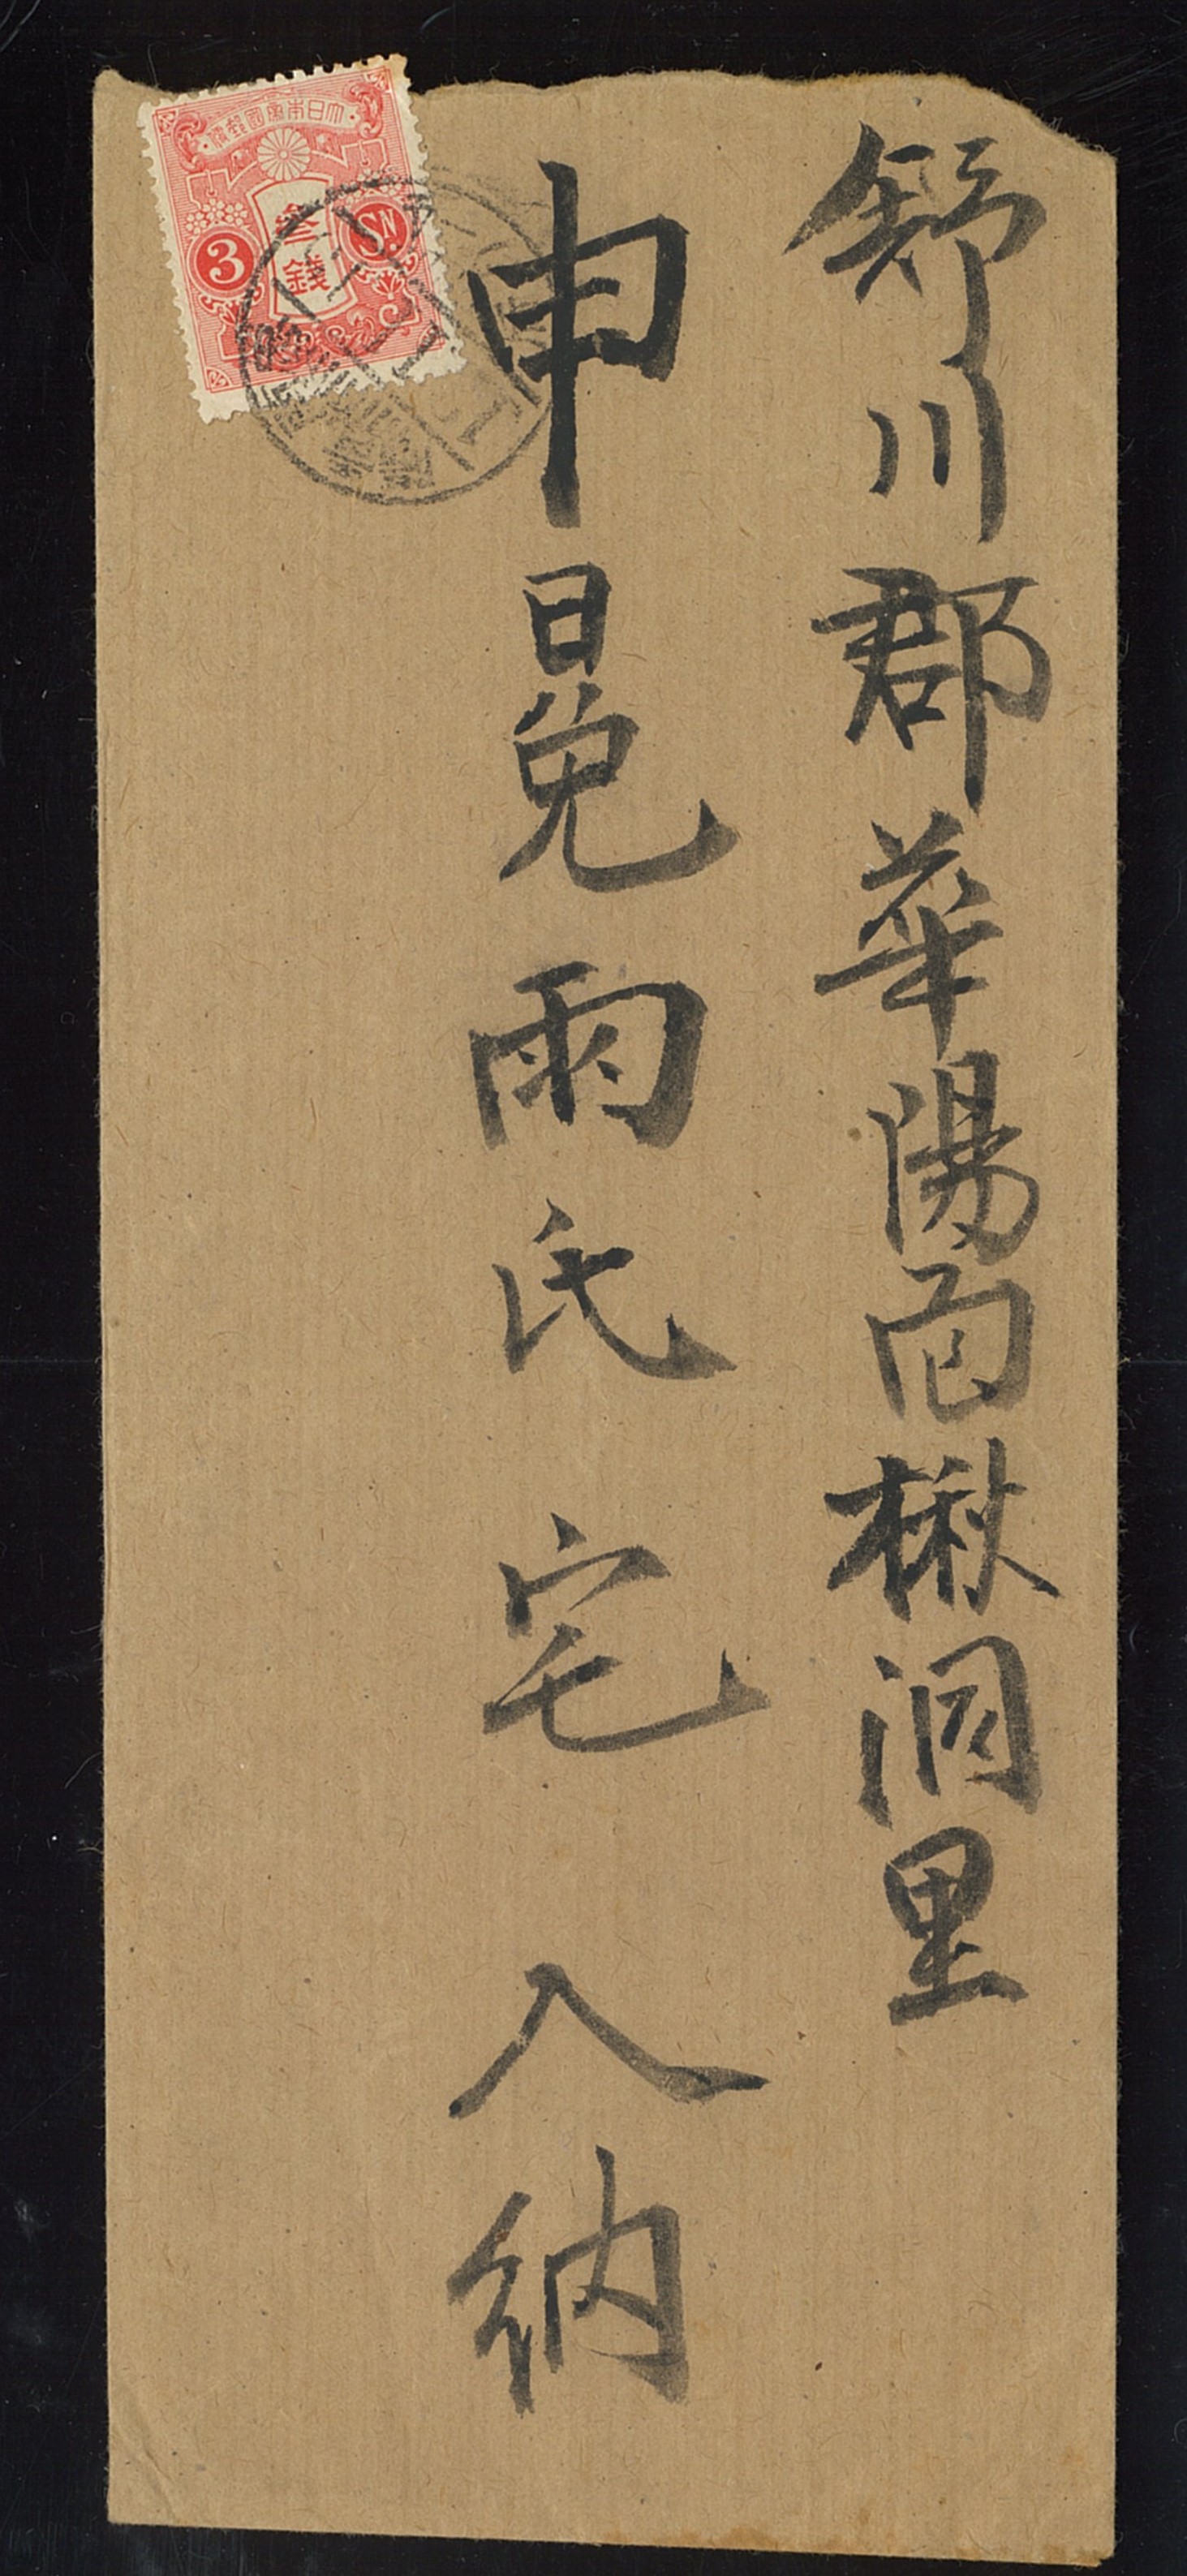 舒川郡華陽面楸洞里
申晃雨氏宅入納
大日本帝國郵便
參錢
3
SN.